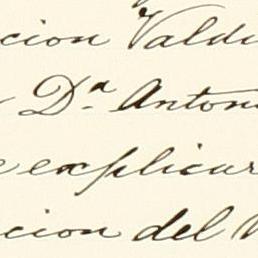 cion Valdi
Dª Antoni
e explicar
cion del V